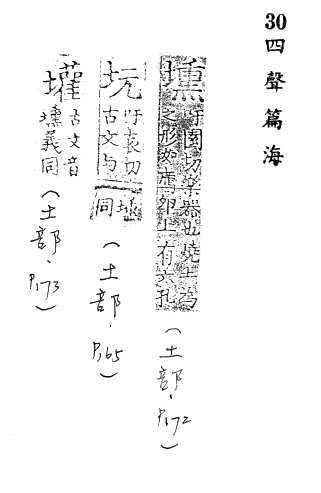 30四聲篇海
壎
吁園切樂器也燒土為
之形如鴈卵上有六孔
(土部.P.172)
坃
吁袁切
古文与
壎
同
(土部.P.165)
古文音
壎義同
(土部.P.173)